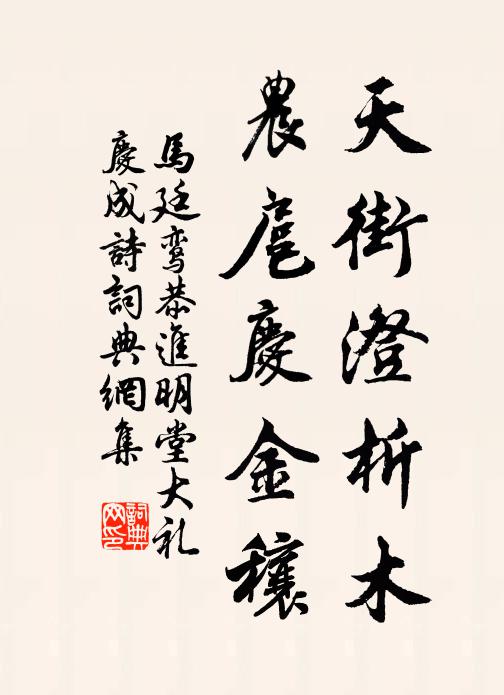 天街澄析木
農扈慶金穰
馬廷鸞恭進明堂大礼
慶成詩詞典網集
詞典网印